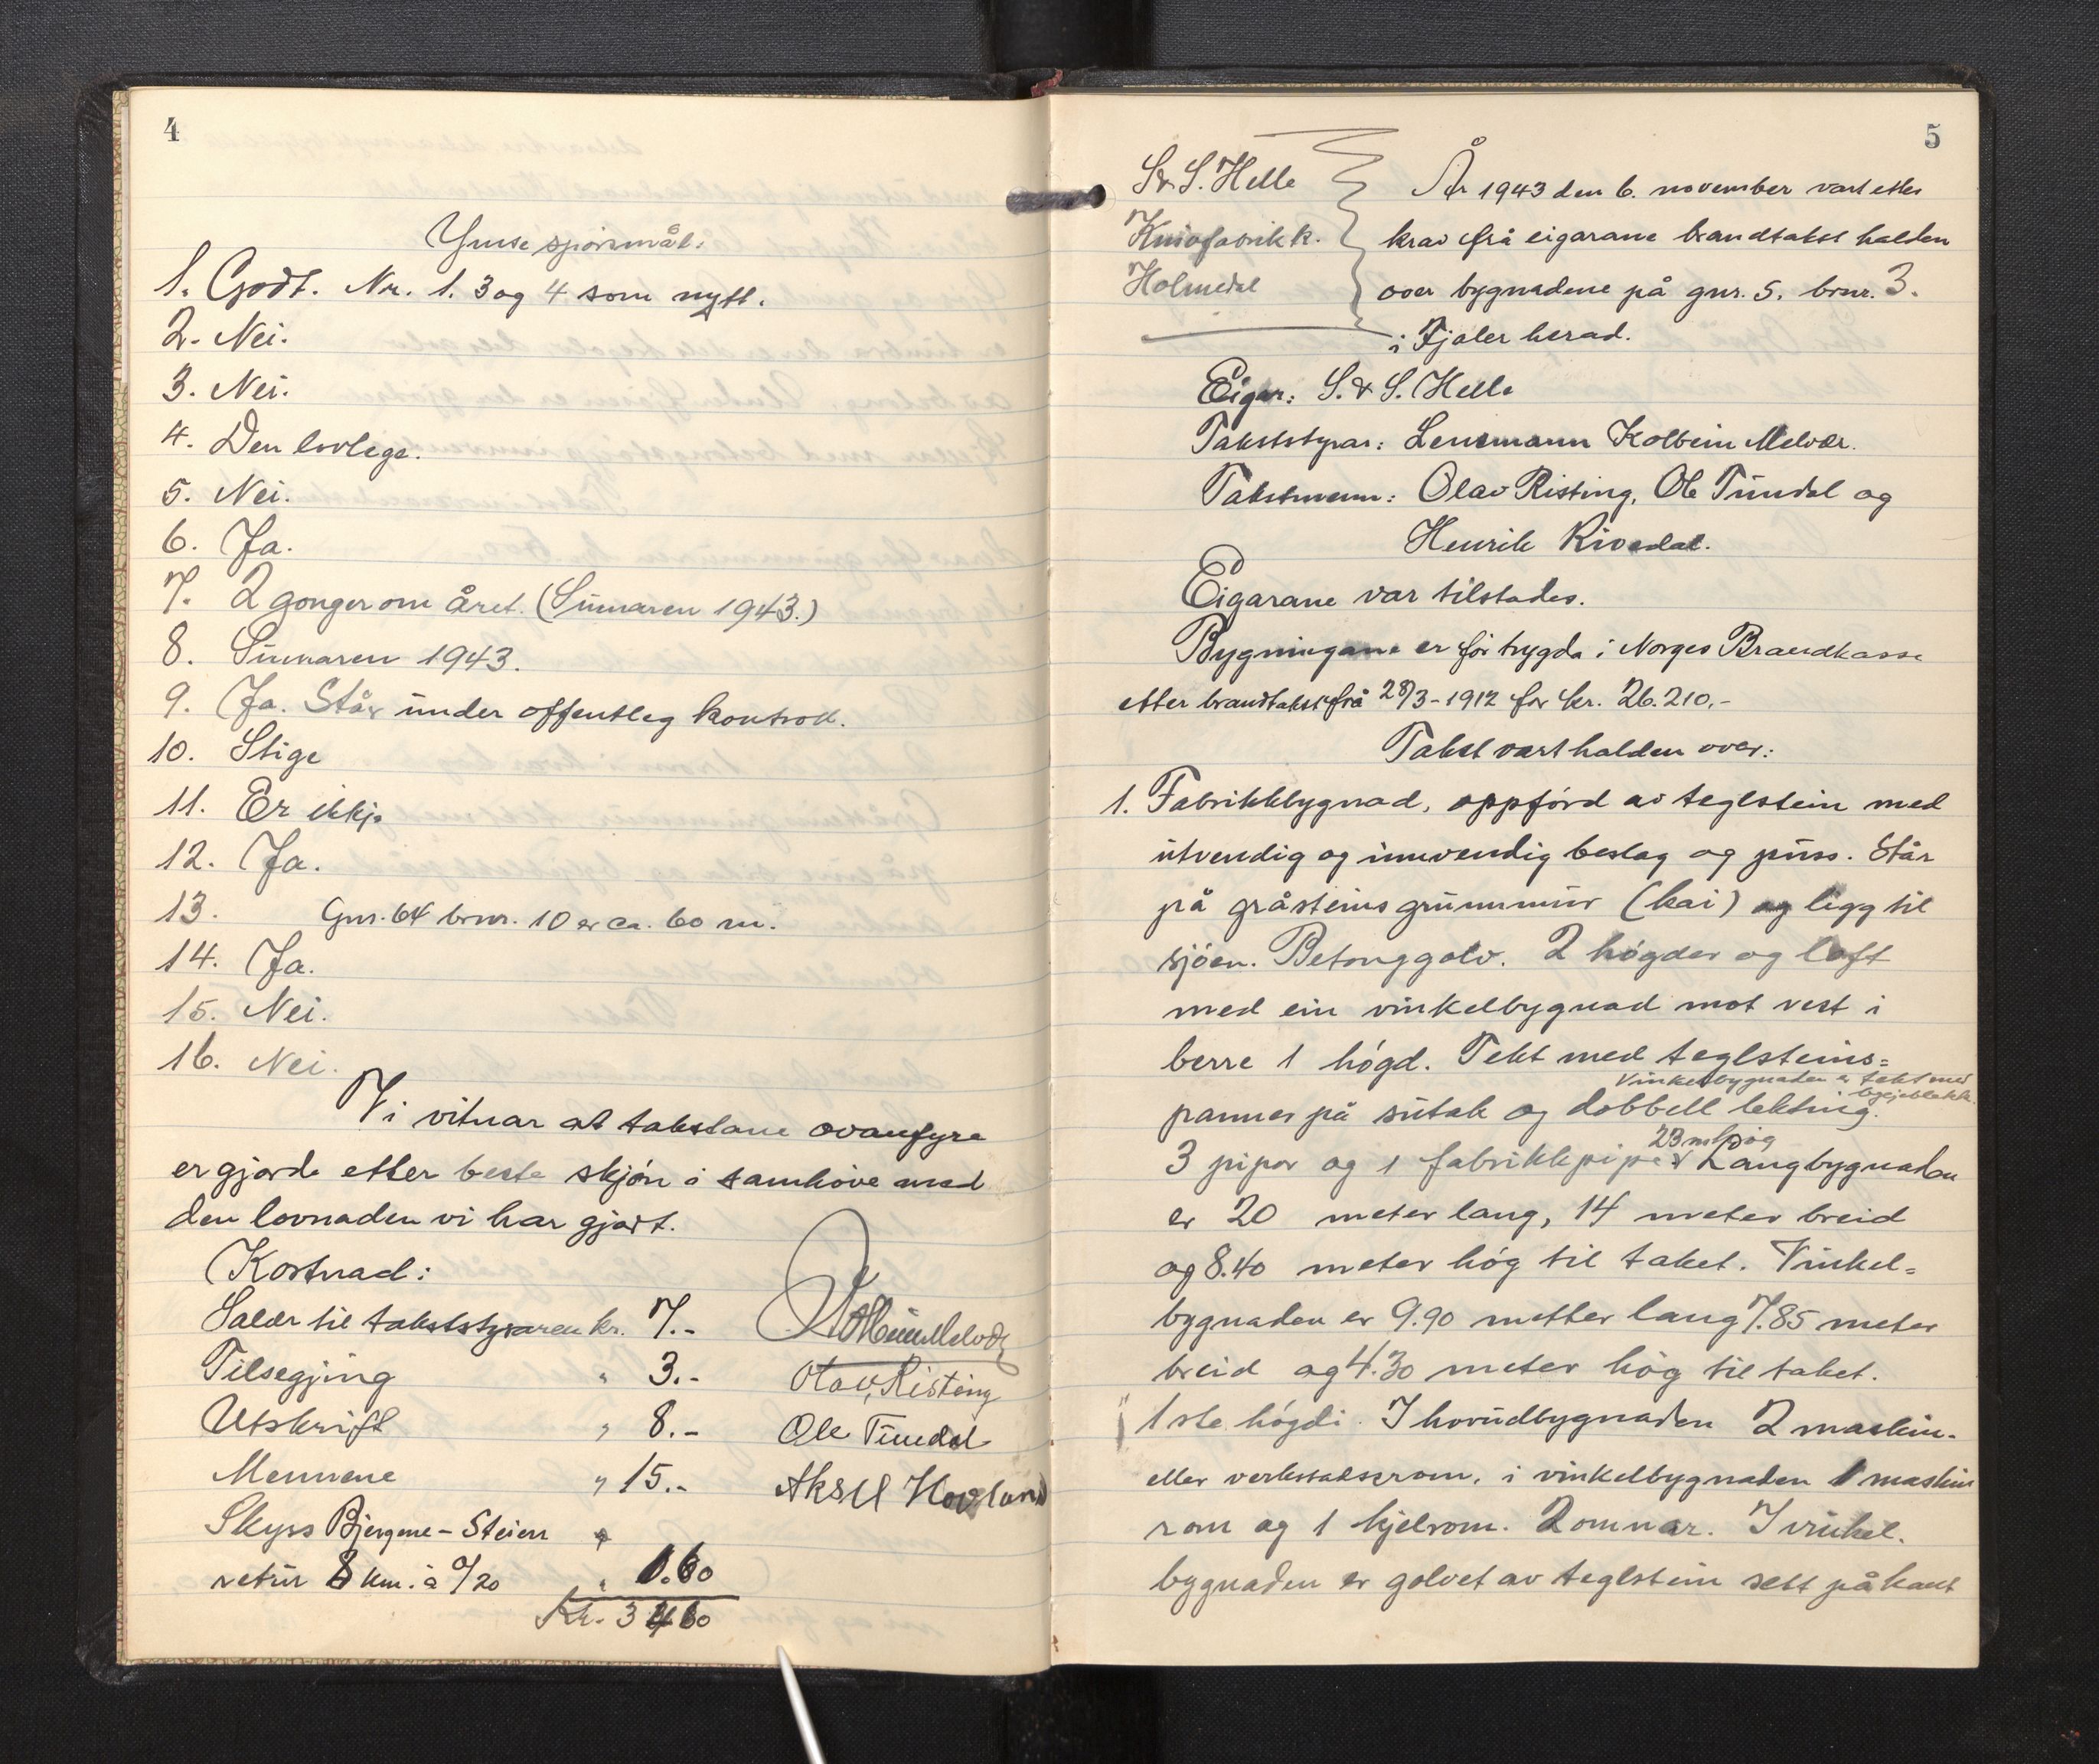 4
Ymse spörsmål:
1. Godt. Nr. 1. 3 og 4 som nytt.
2. Nei.
3. Nei.
4. Den lovlege.
5. Nei.
6. Ja.
7. 2 gonger om året. (Sumaren 1943.)
8. Sumaren 1943.
9. Ja. Står under offentleg kontroll.
10. Stige
11. Er ikkje
12. Ja.
13. Gnr. 64 brnr. 10 er ca. 60 m.
14. Ja.
15. Nei.
16. Nei.
Vi vitnar at takstane ovanfyre
er gjorde etter beste skjön i samhöve med
den lovnaden vi har gjort.
Kostnad:
Salær til takststyraren kr. 7.-
Tilsegjing " 3.-
Utskrift " 8.-
Mennene " 15.-
Skyss Bjergene - Steien "
retur 8 km. à 0/20 " 1.60
Kr. 34.60
Kolbein Melvær
Olav Risting
Ole Tundal
Aksel Hovland
5
S. & S. Helle
Knivfabrikk.
Holmedal
År 1943 den 6. november vart etter
krav frå eigarane brandtakst halden
over bygnadene på gnr. 5. brnr. 3.
i Fjaler herad.
Eigar: S. & S. Helle
Takststyrar: Lensmann Kolbein Melvær.
Takstmenn: Olav Risting, Ole Tundal og
Henrik Rivedal.
Eigarane var tilstades.
Bygningane er for trygda i Norges Brandkasse
etter brandtakst frå 28/3-1912 for kr. 26.210.-
Takst vart halden over:
1. Fabrikkbygnad, oppförd av teglstein med
utvendig og innvendig beslag og puss. Står
på gråsteins grunnmur (kai) og ligg til
sjöen. Betonggolv. 2 högder og loft
med ein vinkelbygnad mot vest i
berre 1 högd. Tekt med teglsteins=
Vinkelbygnaden er tekt med
pannes på sutak og dobbell lekting.
23 m høg
3 pipor og 1 fabrikkpipe. Langbygnaden
er 20 meter lang, 14 meter breid
og 8.40 meter hög til taket. Vinkel=
bygnaden er 9.90 metter lang 7.85 meter
breid og 4.30 meter hög til taket.
1ste högdi. I hovudbygnaden 2 maskin-
eller verkstadsrom, i vinkelbygnaden 1 maskin
rom og 1 kjelrom. 2 omnar. I vinkel.
bygnaden er golvet av teglstein sett på kant